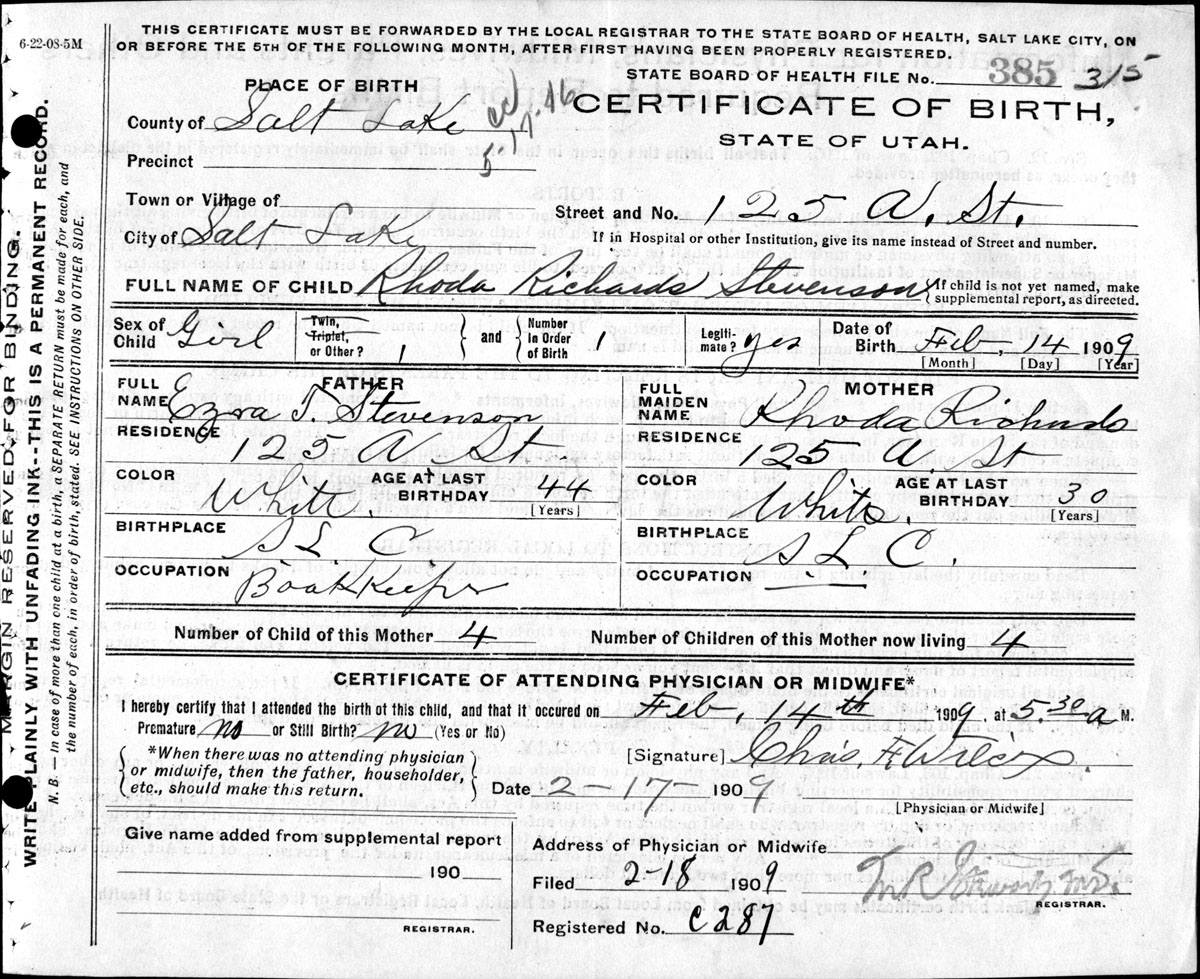 6-22-08-5M
THIS CERTIFICATE MUST BE FORWARDED BY THE LOCAL REGISTRAR TO THE STATE BOARD OF HEALTH, SALT LAKE CITY, ON
OR BEFORE THE 5TH OF THE FOLLOWING MONTH, AFTER FIRST HAVING BEEN PROPERLY REGISTERED.
STATE BOARD OF HEALTH FILE No. 385 315
PLACE OF BIRTH
CERTIFICATE OF BIRTH,
STATE OF UTAH.
County of Salt Lake
Precinct 5
Town or Village of
Street and No. 125 A. St.
City of Salt Lake
If in Hospital or other Institution, give its name instead of Street and number.
FULL NAME OF CHILD Rhoda Richards Stevenson
If child is not yet named, make
supplemental report, as directed.
Sex of Child Girl
Twin, Triplet, or Other? 1 and Number in Order of Birth 1
Legitimate? yes
Date of Birth Feb. 14 1909
[Month] [Day] [Year]
FATHER
FULL NAME Ezra T Stevenson
RESIDENCE 125 A St
COLOR White. AGE AT LAST BIRTHDAY 44
[Years]
BIRTHPLACE S L C
OCCUPATION Bookkeeper
MOTHER
FULL MAIDEN NAME Rhoda Richards
RESIDENCE 125 A St
COLOR White. AGE AT LAST BIRTHDAY 30
[Years]
BIRTHPLACE S L C.
OCCUPATION —
Number of Child of this Mother 4 Number of Children of this Mother now living 4
CERTIFICATE OF ATTENDING PHYSICIAN OR MIDWIFE*
I hereby certify that I attended the birth of this child, and that it occured on Feb, 14th 1909, at 5.30 a M.
Premature no or Still Birth? no (Yes or No)
*When there was no attending physician
or midwife, then the father, householder,
etc., should make this return.
[Signature] Chas. F Wilcox
Date 2-17 1909
[Physician or Midwife]
Give name added from supplemental report
190
REGISTRAR.
Address of Physician or Midwife
Filed 2-18 1909
REGISTRAR.
Registered No. C281
MARGIN RESERVED FOR BINDING.
WRITE PLAINLY WITH UNFADING INK--THIS IS A PERMANENT RECORD.
N. B.—In case of more than one child at a birth, a SEPARATE RETURN must be made for each, and
the number of each, in order of birth, stated. SEE INSTRUCTIONS ON OTHER SIDE.